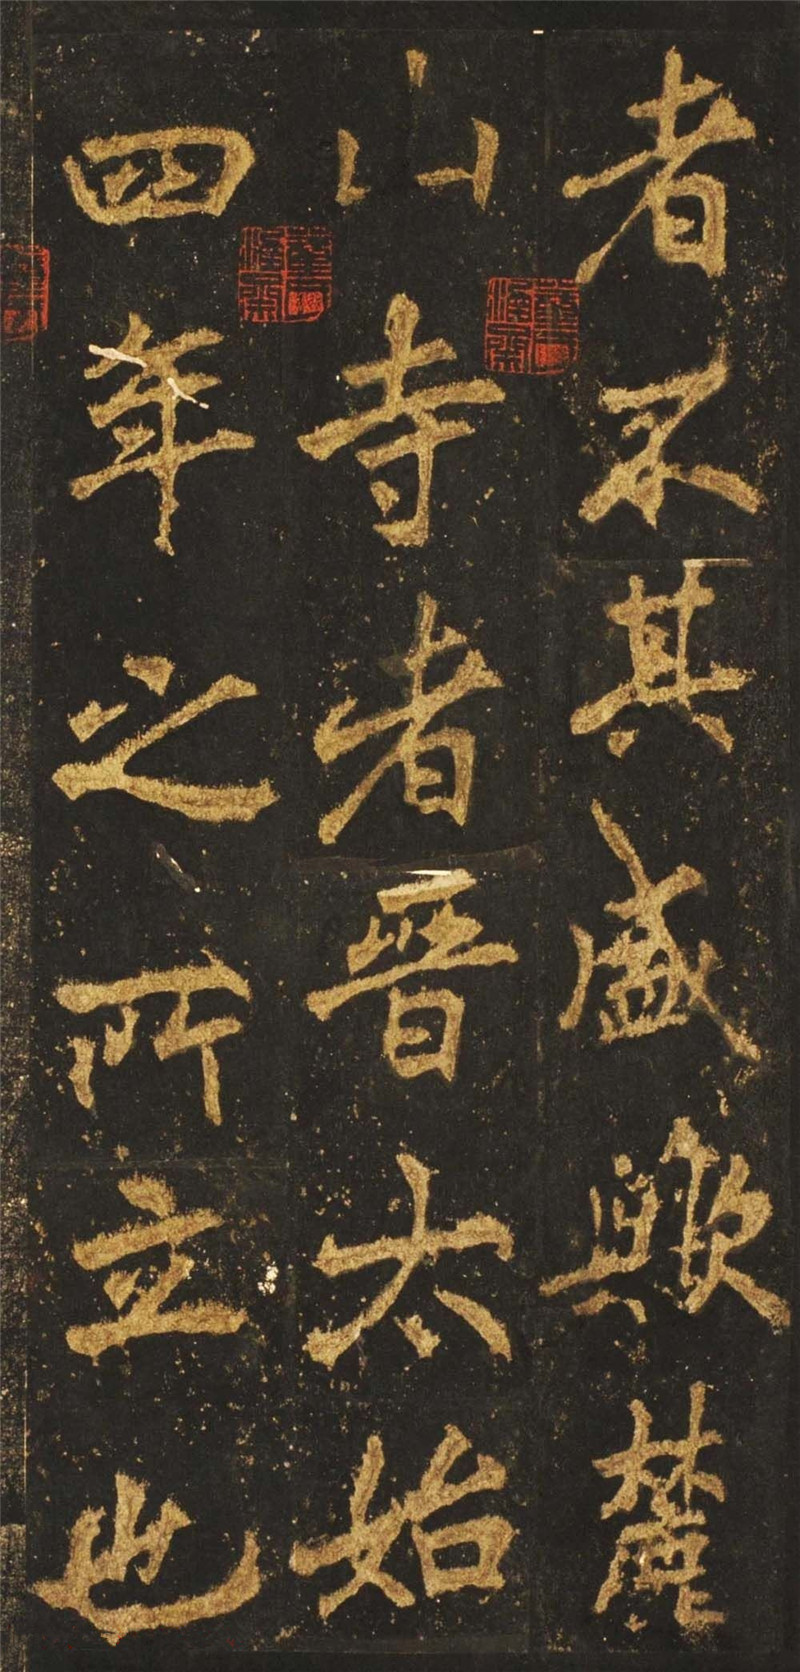 者不其盛歟麓
山寺者晉太始
四年之所立也